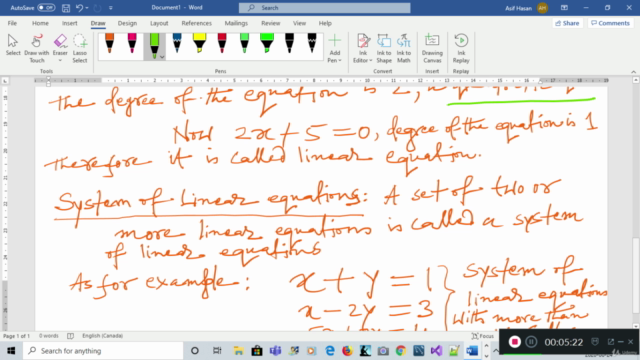 AutoSave Off Document1 - Word Search Asif Hasan AH
File Home Insert Draw Design Layout References Mailings Review View Help Share Comments
Select Draw with Touch Eraser Lasso Select Add Pen Ink Editor Ink to Shape Ink to Math Ink Replay
Tools Pens Convert Replay
The degree of the equation is 2,
Now 2x + 5 = 0, degree of the equation is 1
Therefore it is called linear equation.
System of Linear equations: A set of two or
more linear equations is called a system
of linear equations
As for example: x + y = 1 System of
x - 2y = 3 linear equations
with more than
Page 1 of 1 0 words English (Canada)
Type here to search
00:05:22